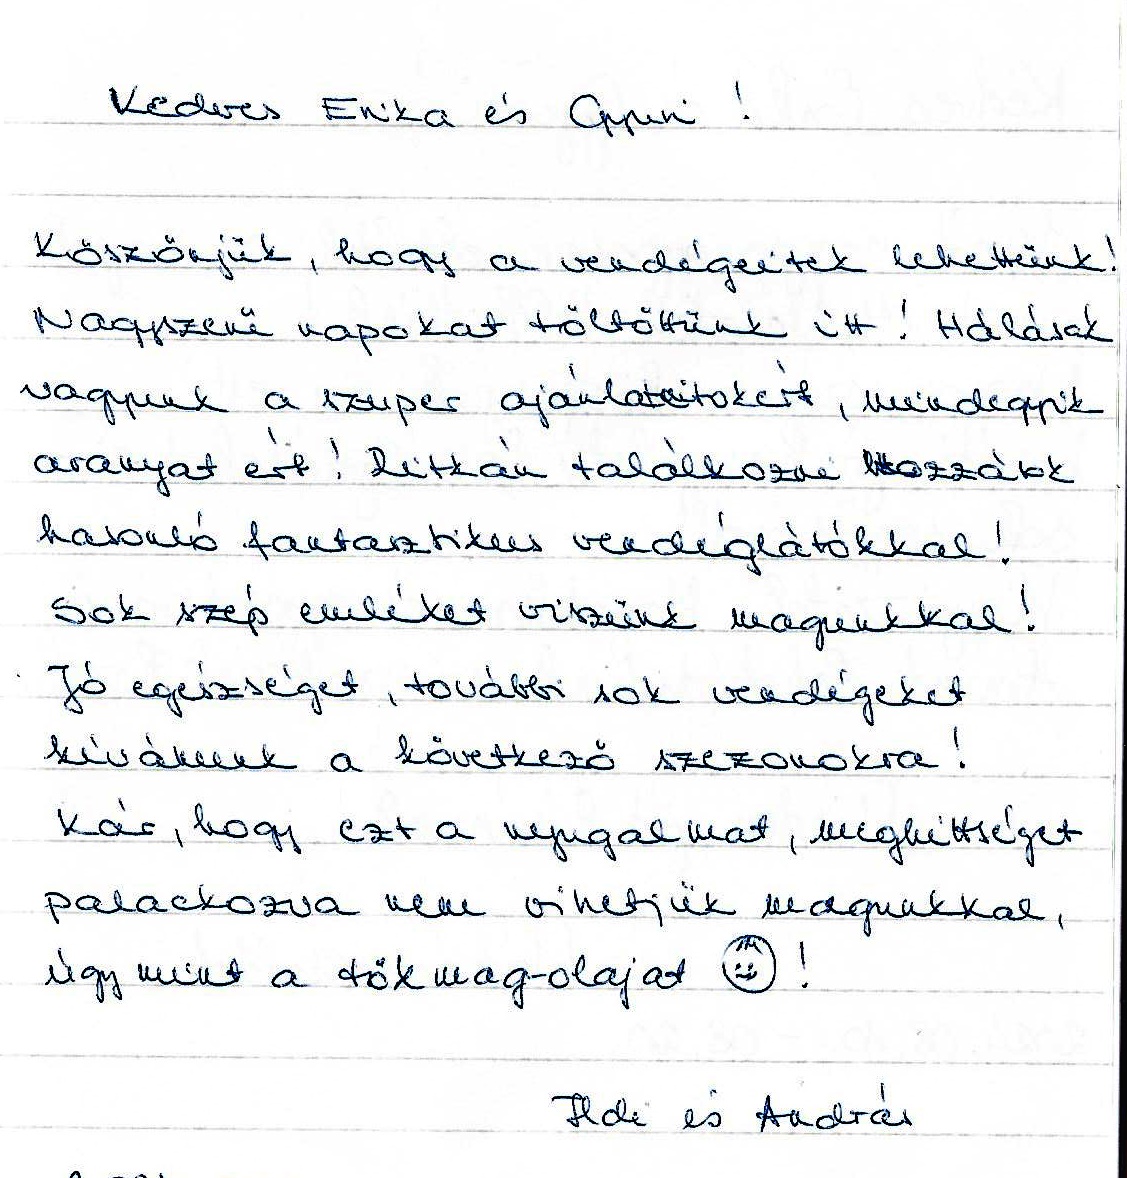 Kedves Erika és Gyuri !
Köszönjük, hogy a vendégeitek lehettünk!
Nagyszerű napokat töltöttünk itt ! Hálásak
vagyunk a szuper ajánlataitokért, mindegyik
aranyat ért ! Ritkán találkozni hozzátok
hasonló fantasztikus vendéglátókkal !
Sok szép emléket viszünk magunkkal !
Jó egészséget, további sok vendégeket
kívánunk a következő szezonokra !
Kár, hogy ezt a nyugalmat, meghittséget
palackozva nem vihetjük magunkkal,
úgy mint a tökmag-olajat ☺ !
Ildi és András